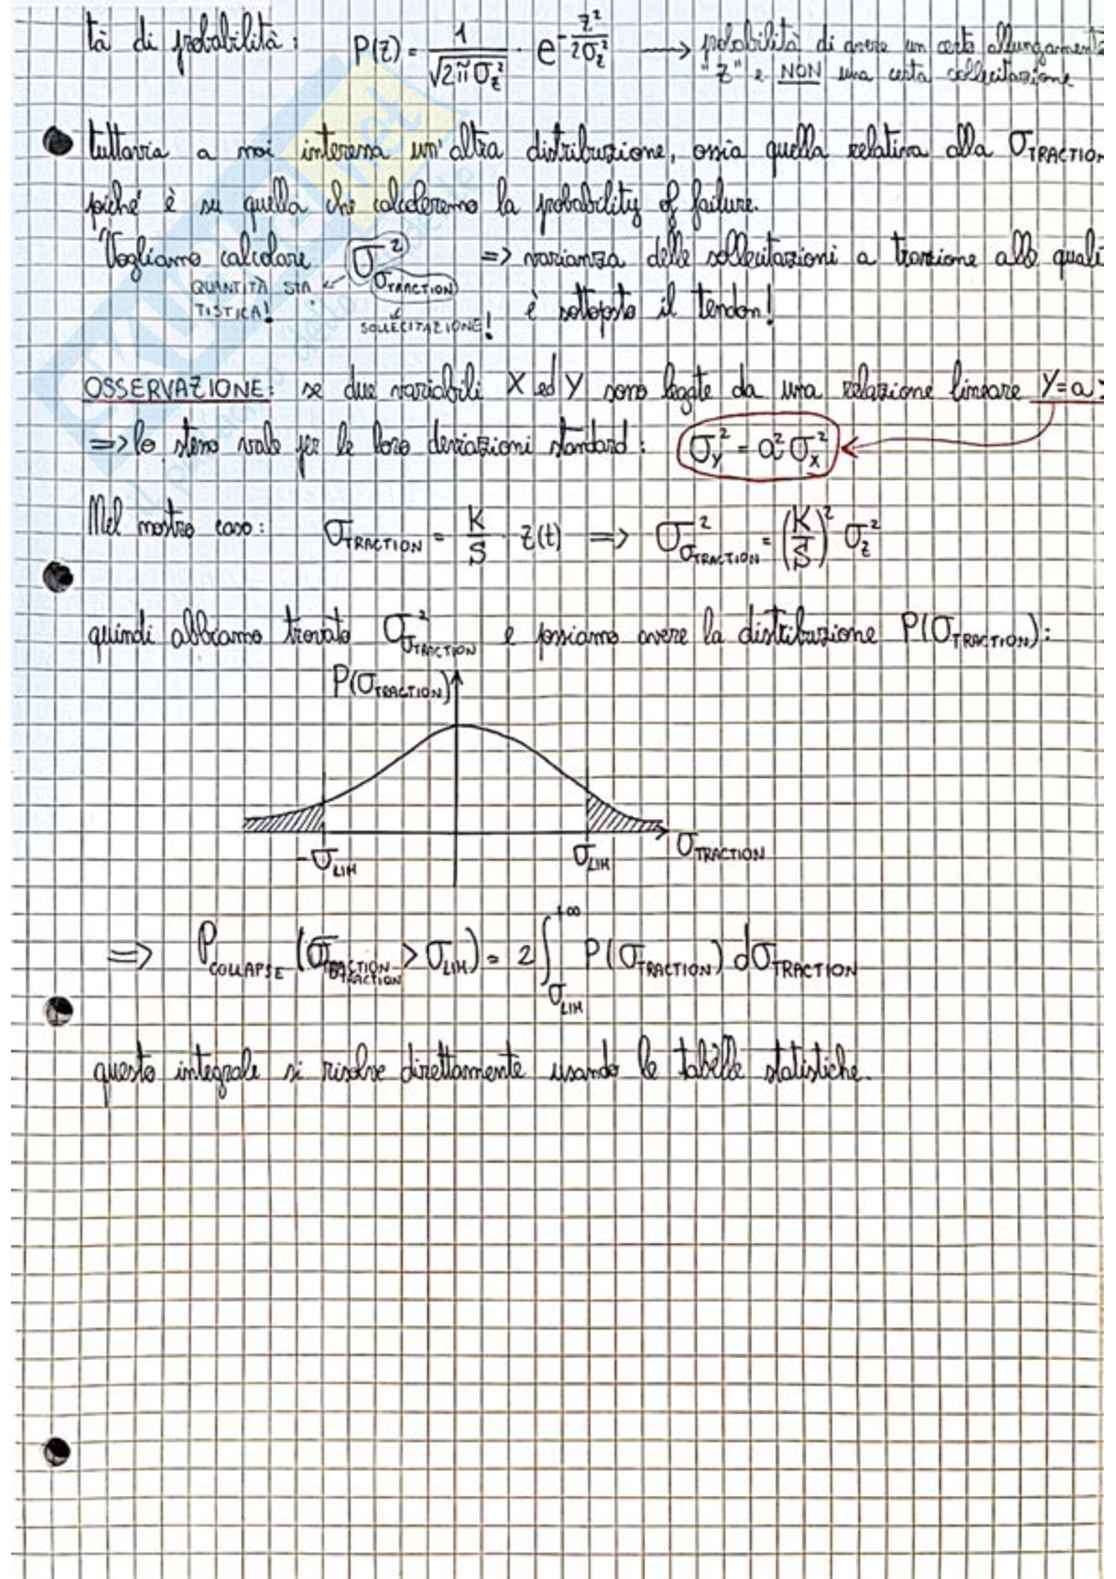 tà di probabilità: P(z) = 1/√(2πσ_z²) · e^(-z²/2σ_z²) → probabilità di avere un certo allungamento
"z" e NON una certa sollecitazione
tuttavia a noi interessa un'altra distribuzione, ossia quella relativa alla σ_TRACTION
poiché è su quella che calcoleremo la probability of failure.
Vogliamo calcolare σ²_σTRACTION => varianza delle sollecitazioni a trazione alle quali
QUANTITÀ STA
TISTICA!
SOLLECITAZIONE! è sottoposto il tendon!
OSSERVAZIONE: se due variabili X ed Y sono legate da una relazione lineare Y=a
=> lo stesso vale per le loro deviazioni standard: σ_Y² = a² σ_X²
Nel nostro caso: σ_TRACTION = K/S · z(t) => σ²_σTRACTION = (K/S)² σ_z²
quindi abbiamo trovato σ²_σTRACTION e possiamo avere la distribuzione P(σ_TRACTION):
P(σ_TRACTION)
-σ_LIM σ_LIM σ_TRACTION
=> P_COLLAPSE (σ_TRACTION > σ_LIM) = 2∫_σLIM^+∞ P(σ_TRACTION) dσ_TRACTION
questo integrale si risolve direttamente usando le tabelle statistiche.